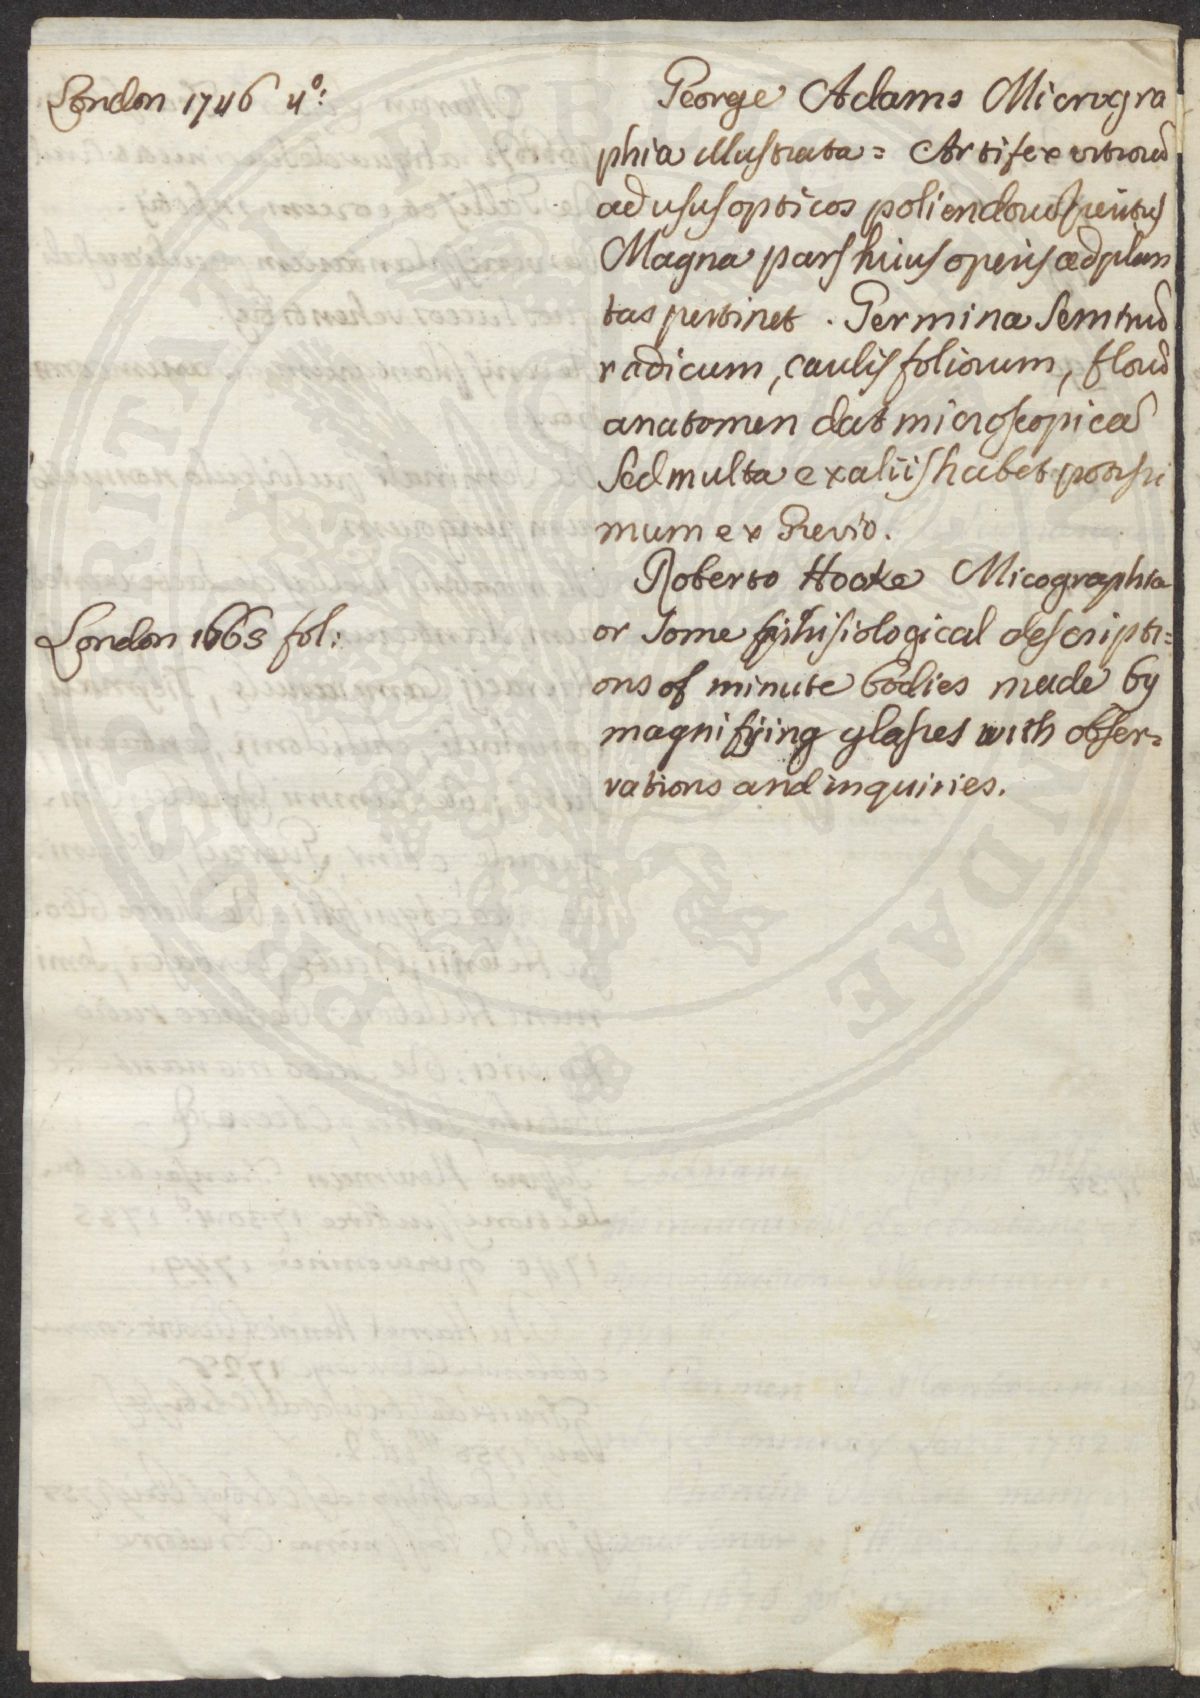 London 1746 4º:
George Adams Microgra
phia illustrata = Artifex vitroru͂
ad usus opticos poliendoru͂ peritus
Magna pars huius operis ad plan
tas pertinet . Germina Seminu͂
radicum, caulis foliorum, floru͂
anatomen dat microscopica͂
Sed multa ex aliis habet potissi
mum ex Grevio.
London 1665 fol:
Roberto Hooke Micographia
or Some phisiological descripti=
ons of minute bodies made by
magnifying glasses with obser=
vations and inquiries.